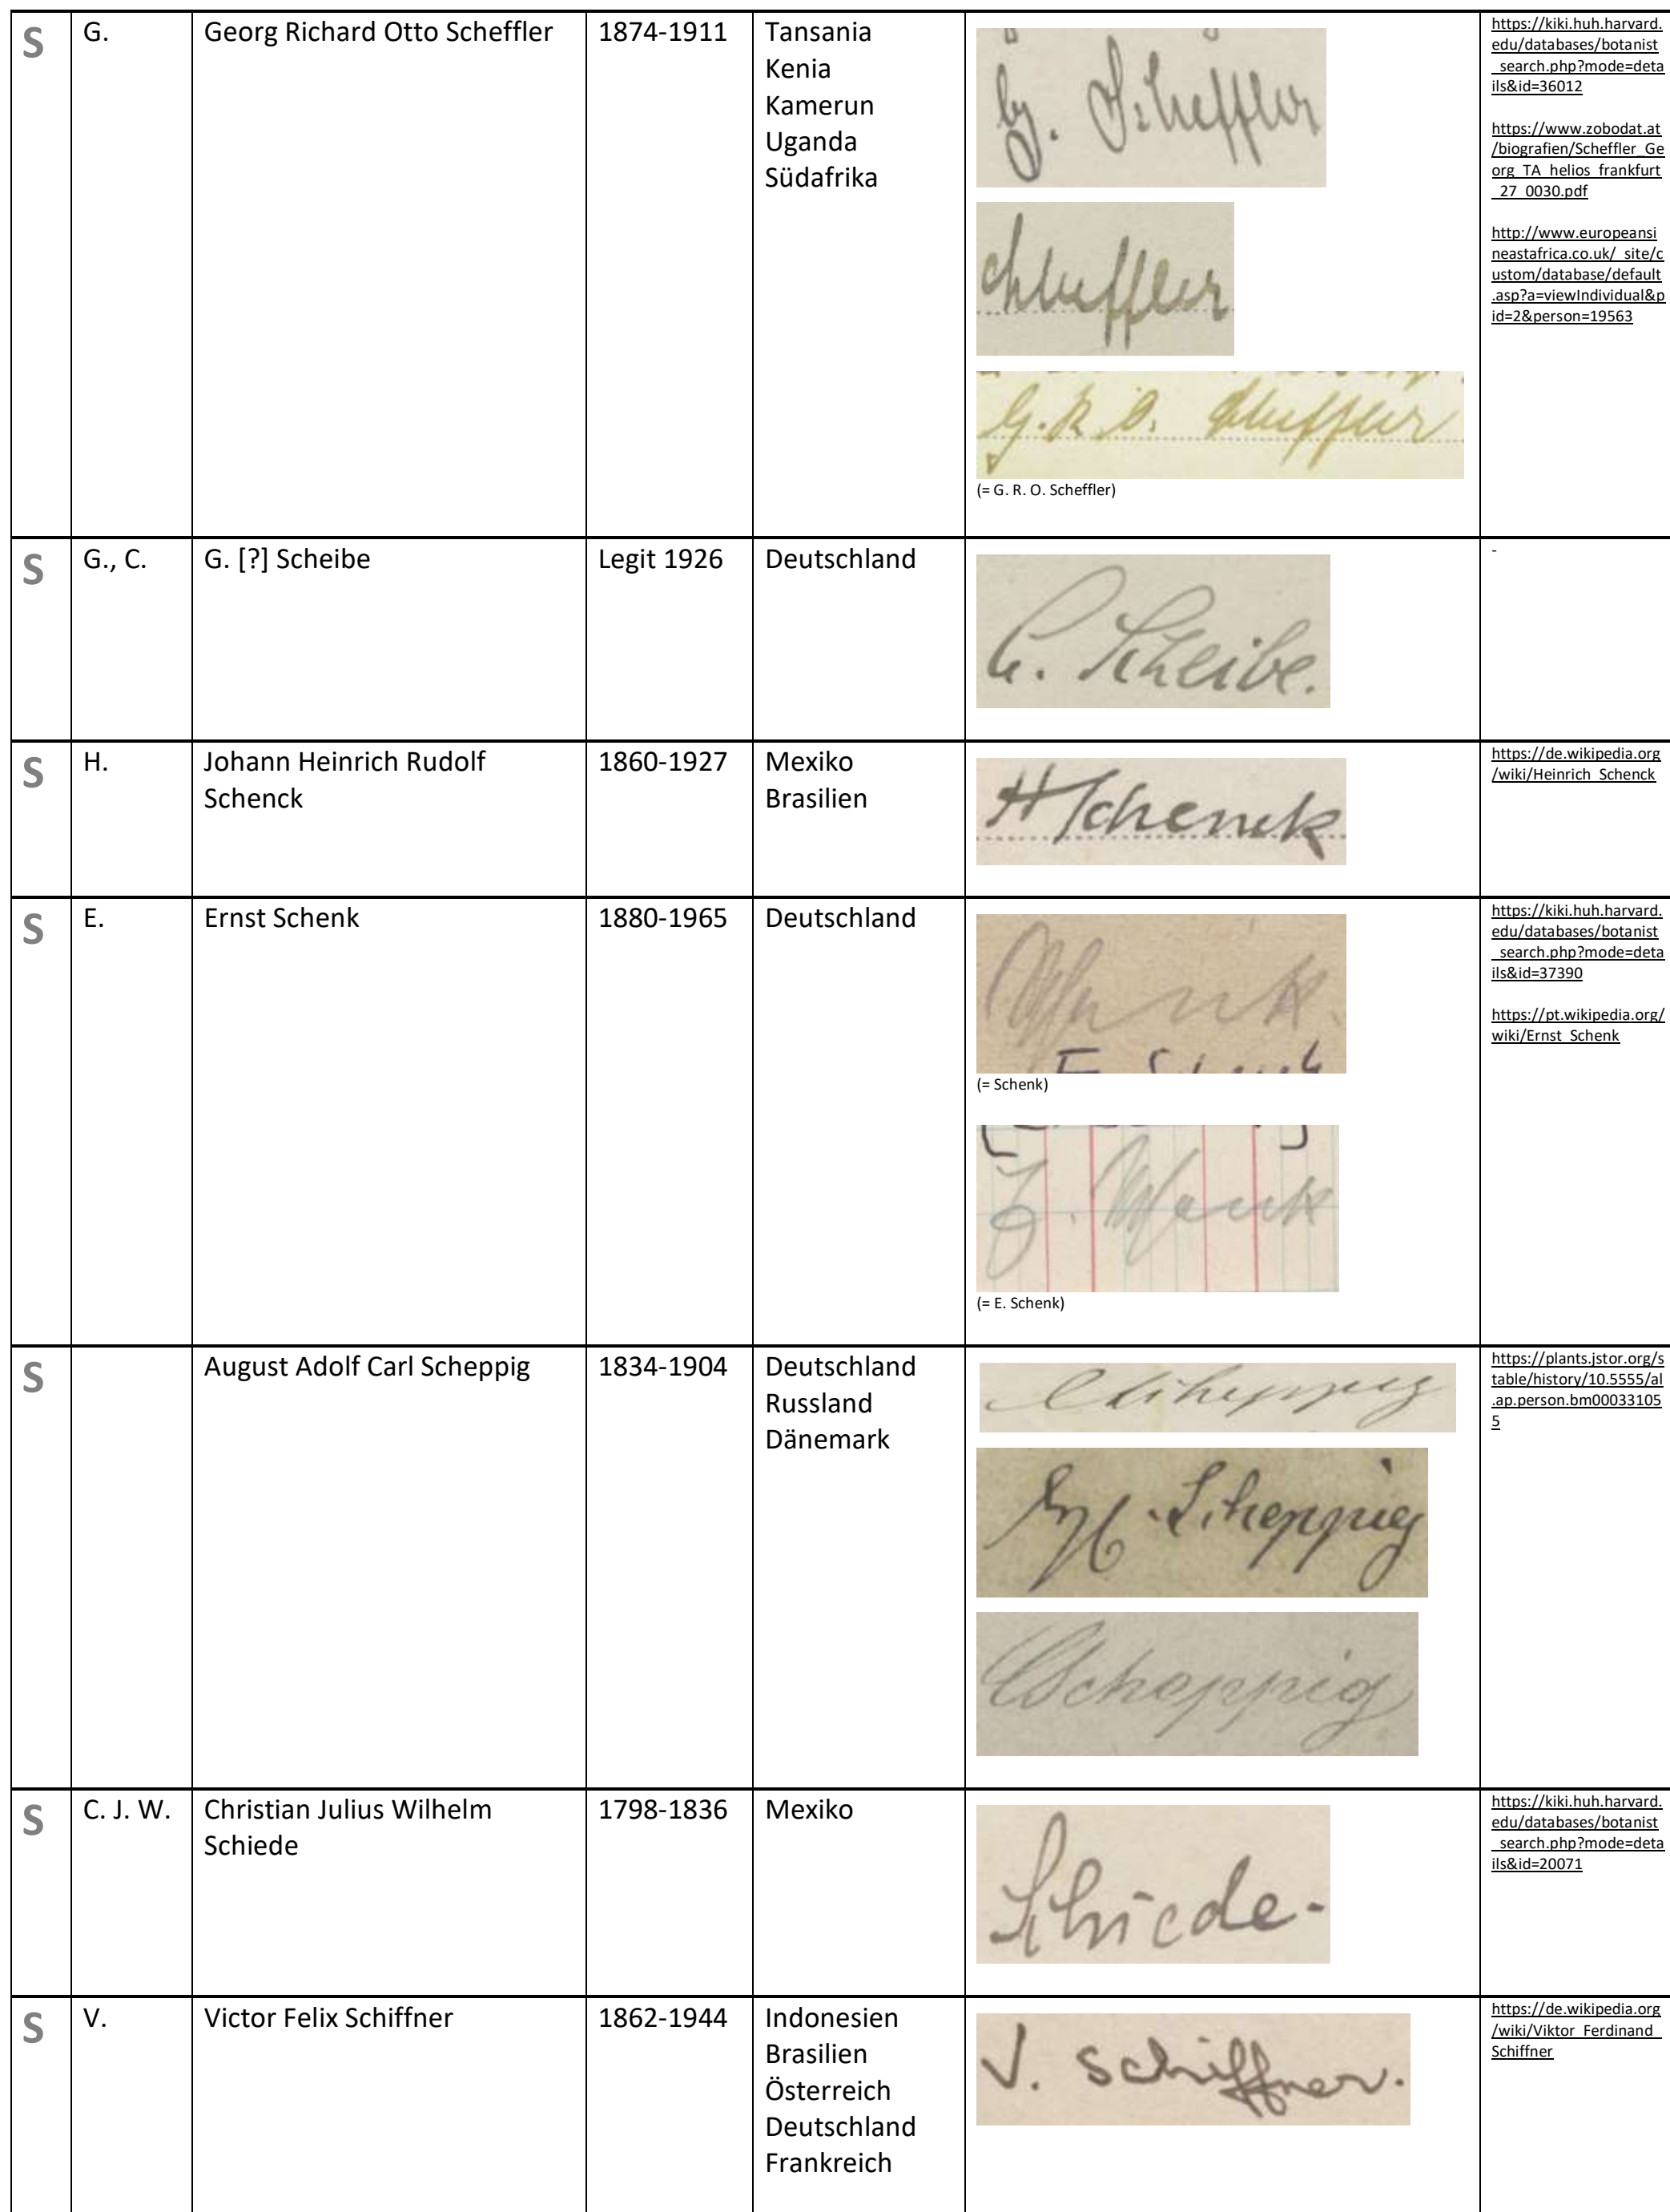 S G. Georg Richard Otto Scheffler 1874-1911 Tansania
Kenia
Kamerun
Uganda
Südafrika
G. Scheffler
Scheffler
G. R. O. Scheffler
(= G. R. O. Scheffler)
https://kiki.huh.harvard.
edu/databases/botanist
_search.php?mode=deta
ils&id=36012
https://www.zobodat.at
/biografien/Scheffler_Ge
org_TA_helios_frankfurt
_27_0030.pdf
http://www.europeansi
neastafrica.co.uk/_site/c
ustom/database/default
.asp?a=viewIndividual&p
id=2&person=19563
S G., C. G. [?] Scheibe Legit 1926 Deutschland
Scheibe.
-
S H. Johann Heinrich Rudolf
Schenck
1860-1927 Mexiko
Brasilien
H Schenck
https://de.wikipedia.org
/wiki/Heinrich_Schenck
S E. Ernst Schenk 1880-1965 Deutschland
Schenk.
(= Schenk)
E. Schenk
(= E. Schenk)
https://kiki.huh.harvard.
edu/databases/botanist
_search.php?mode=deta
ils&id=37390
https://pt.wikipedia.org/
wiki/Ernst_Schenk
S August Adolf Carl Scheppig 1834-1904 Deutschland
Russland
Dänemark
C Scheppig
Scheppig
CScheppig
https://plants.jstor.org/s
table/history/10.5555/al
.ap.person.bm00033105
5
S C. J. W. Christian Julius Wilhelm
Schiede
1798-1836 Mexiko
Schiede-
https://kiki.huh.harvard.
edu/databases/botanist
_search.php?mode=deta
ils&id=20071
S V. Victor Felix Schiffner 1862-1944 Indonesien
Brasilien
Österreich
Deutschland
Frankreich
V. Schiffner.
https://de.wikipedia.org
/wiki/Viktor_Ferdinand_
Schiffner